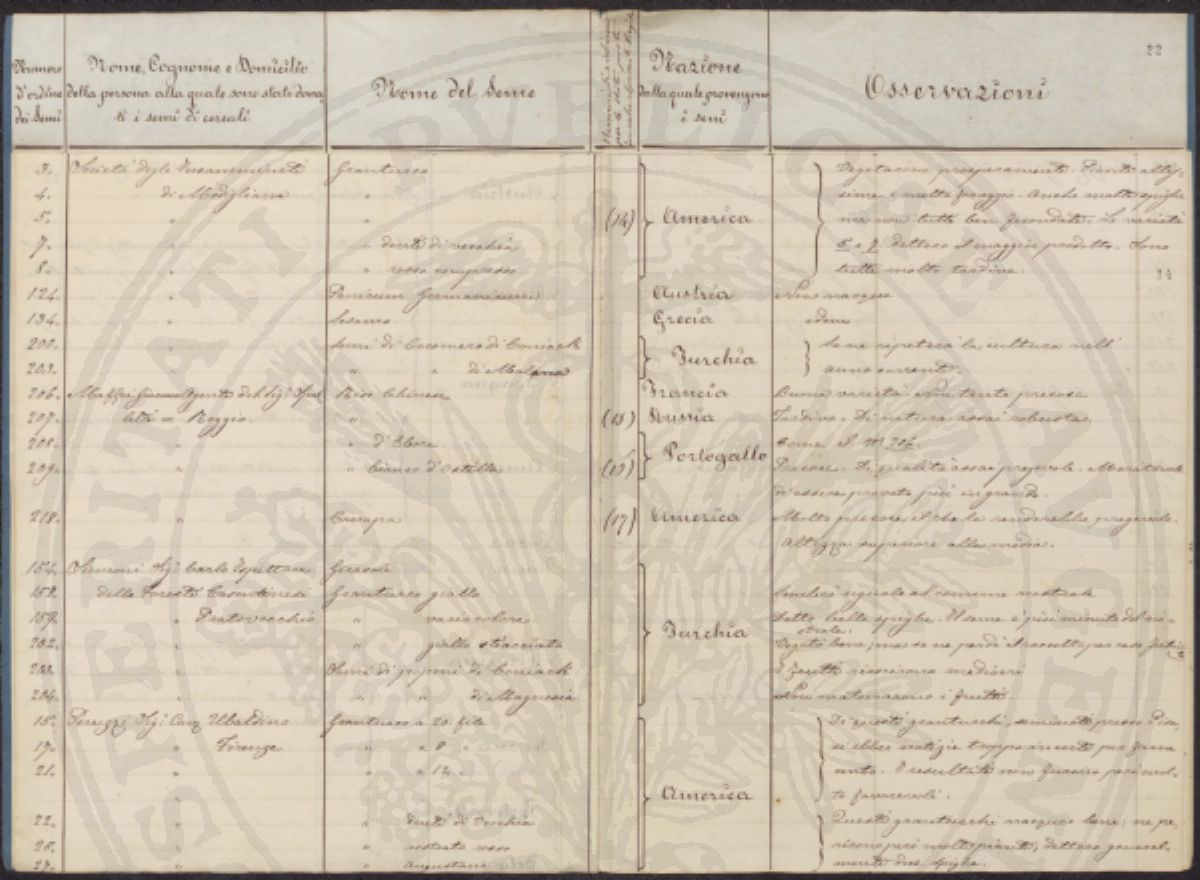 22
Numero d'ordine dei Semi
Nome, Cognome e Domicilio della persona alla quale sono stati donati i semi di cereali
Nome del Seme
Nazione dalla quale provengono i semi
Osservazioni
3. Società degli Granturco Vegetarono prosperamente. Piante altis-
4. di Modigliana " sime e molto foraggio. Anche molte spighe
5. " " (14) America ma non tutte ben fecondate. Le varietà
7. " " denti di vecchia 5 e 7 dettero il maggior prodotto. Sono
8. " " rosso compresso tutte molto tardive.
14
124. " Panicum Germanicum Austria Non nacque
134. " Sesamo Grecia idem
200. " Semi di Cocomero di Coniack Turchia Se ne ripeterà la cultura nell'
203. " " " di anno corrente.
206. Maffei Giacomo Agente del Sig. Riso Chinese Francia Buona varietà. Non tanto precoce
207. = Reggio. " " (15) Russia Tardivo. Di natura assai robusta.
208. " " d' Portogallo Come il N. 206.
209. " " bianco d' (16) Precoce. Di qualità assai pregevole.
di essere provato più in grande.
218. " (17) America Molto precoce, il che lo renderebbe pregevole.
Altezza superiore alla media.
154. Sig. Carlo Ispettore Girasole
158. delle Foreste Casentinesi Granturco giallo Turchia Semi uguale al comune nostrale
159. " Pratovecchio " varicolore Fatto belle spighe. Il seme è più minuto del no-
strale.
202. " " giallo stiacciato Vegetò bene, ma se ne perdè il raccolto per
203. " Semi di poponi di Coniack I frutti riescirono mediocri
204. " " " di Magnesia Non maturarono i frutti.
15. Peruzzi Sig. Cav. Ubaldino Granturco a 20 file Di questi granturchi, seminati presso Pisa,
19. " Firenze " a 8 " si ebber notizie troppo incerte per
21. " " a 12 " America I resultati non furono però mol-
to favorevoli.
22. " " denti di Vecchia Questi granturchi nacquero bene; ne pe-
26. " " rostrato rosso rirono però molte piante, dettero general-
27. " " augustano mente due spighe.